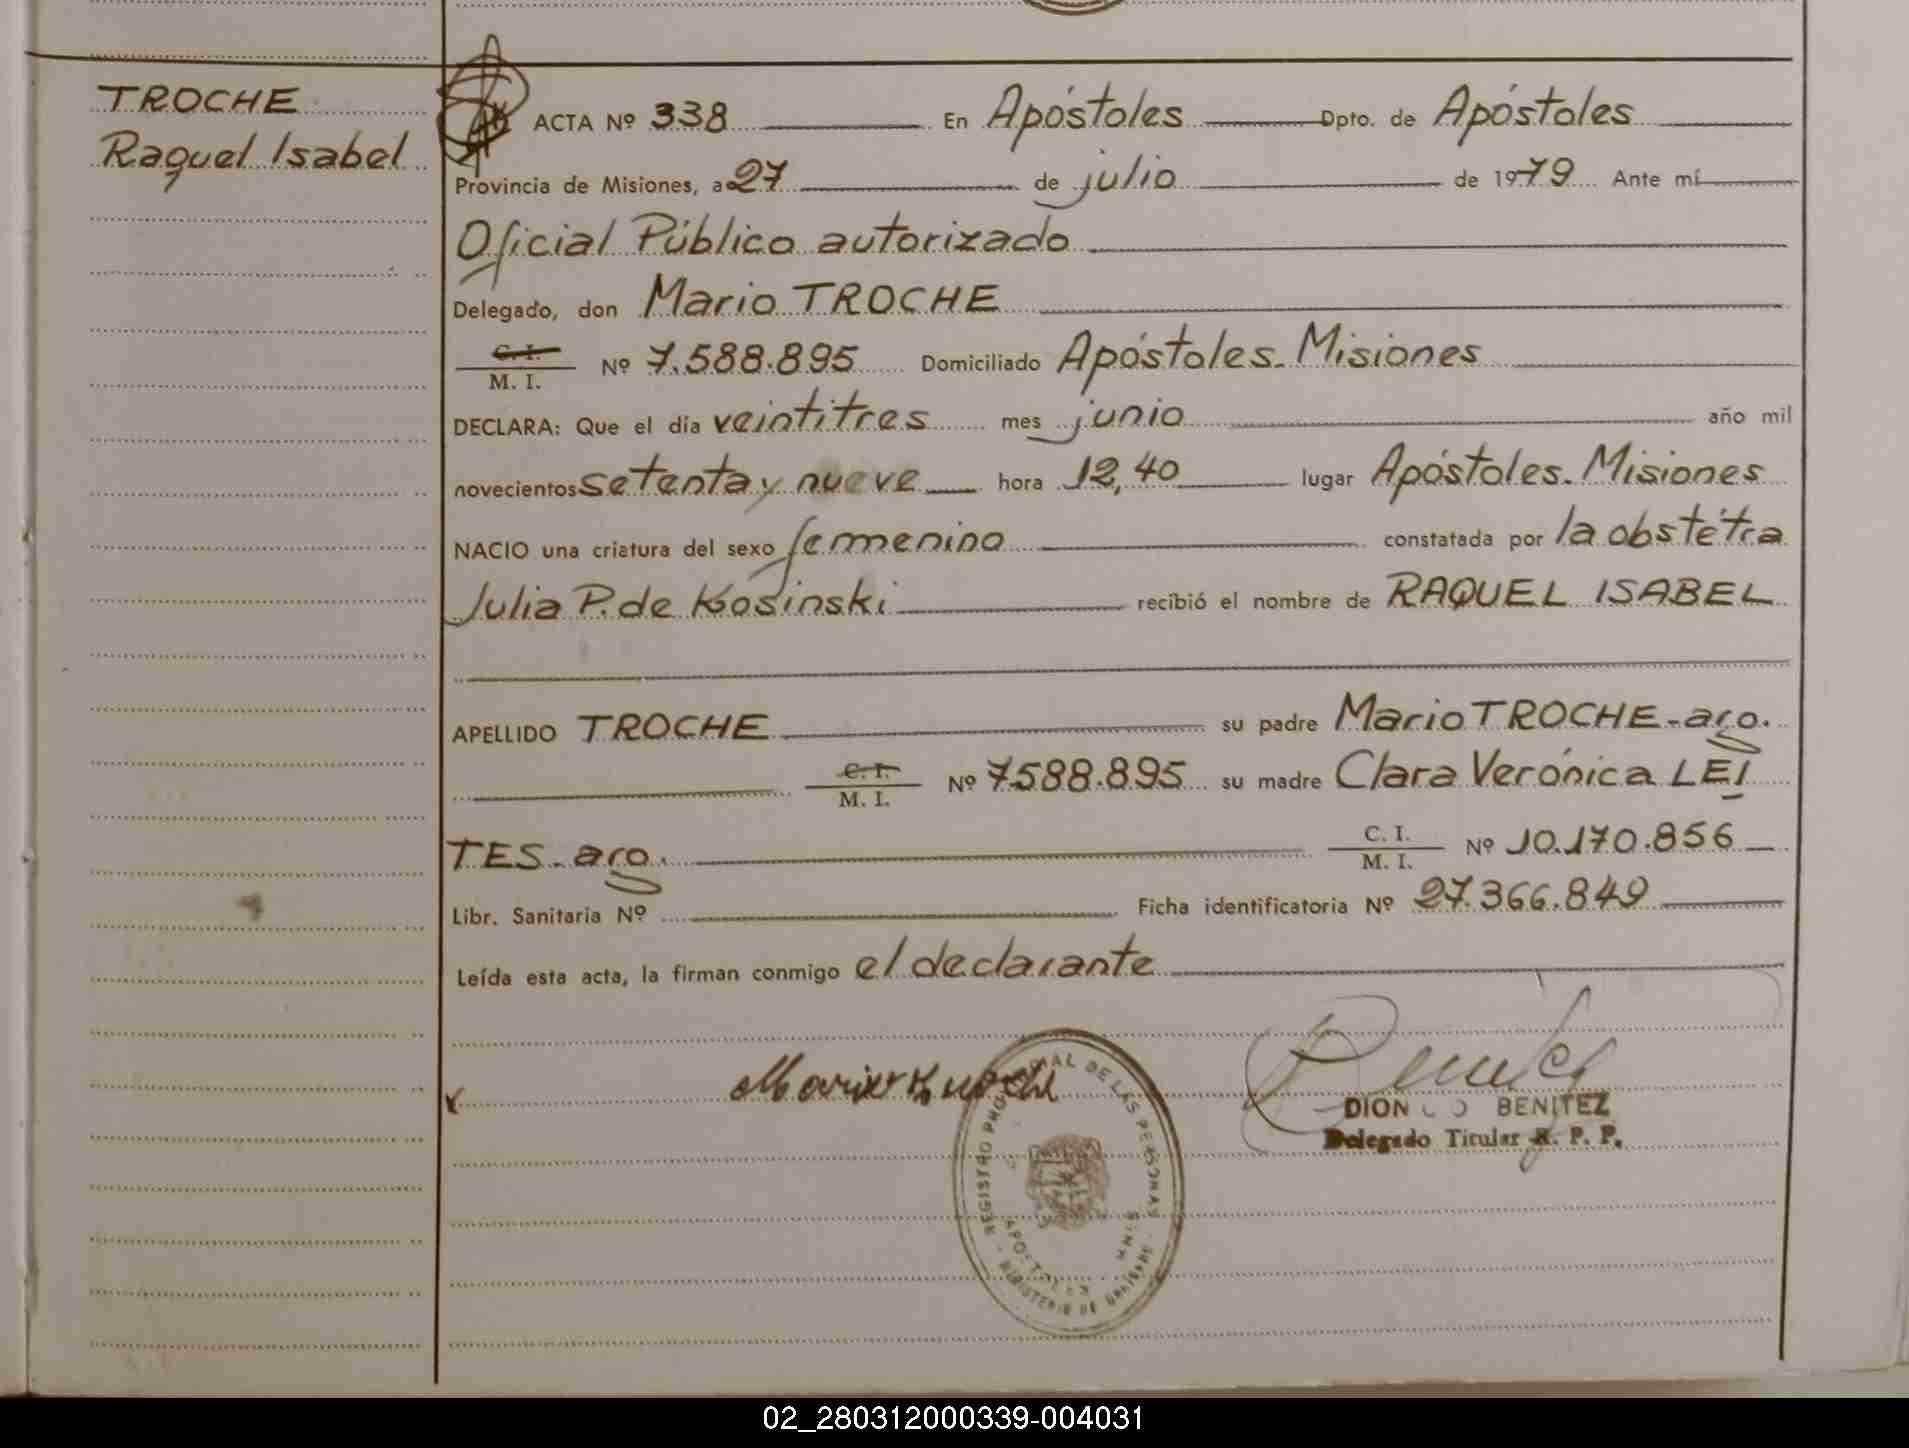 TROCHE
Raquel Isabel
ACTA Nº 338 En Apóstoles Dpto. de Apóstoles
Provincia de Misiones, a 27 de julio de 1979 Ante mí
Oficial Público autorizado
Delegado, don Mario TROCHE
C. I.
M. I. Nº 7.588.895 Domiciliado Apóstoles. Misiones
DECLARA: Que el día veintitres mes junio año mil
novecientos setenta y nueve hora 12,40 lugar Apóstoles. Misiones
NACIO una criatura del sexo femenino constatada por la obstétra
Julia P. de Kosinski recibió el nombre de RAQUEL ISABEL
APELLIDO TROCHE su padre Mario TROCHE-aro.
C. I.
M. I. Nº 7588.895 su madre Clara Verónica LEI
TES-aro. C. I.
M. I. Nº 10.170.856
Libr. Sanitaria Nº Ficha identificatoria Nº 27.366.849
Leída esta acta, la firman conmigo el declarante
REGISTRO DE LAS PERSONAS
APOSTOLES
MINISTERIO DE
BENITEZ
Delegado Titular R. P. P.
02_280312000339-004031